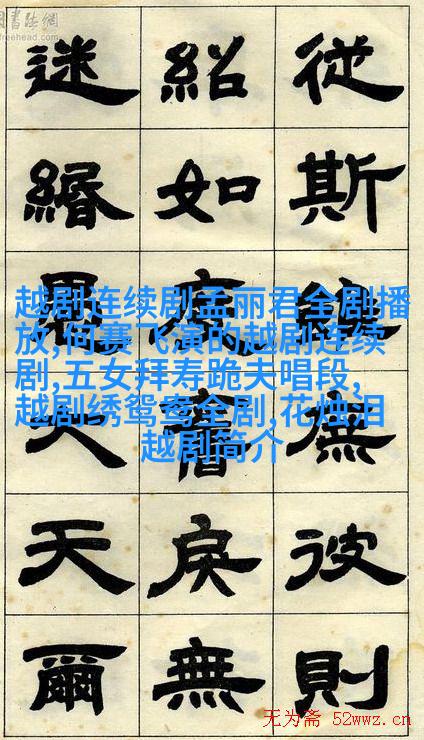 書法網
freehead.com
從斯彼則
紹如戾無
迷緡天爾
越剧连续剧孟丽君全剧播
放,何赛飞演的越剧连续
剧,五女拜寿跪夫唱段,
越剧绣鸳鸯全剧,花烛泪
越剧简介
无为斋 52wwz.cn